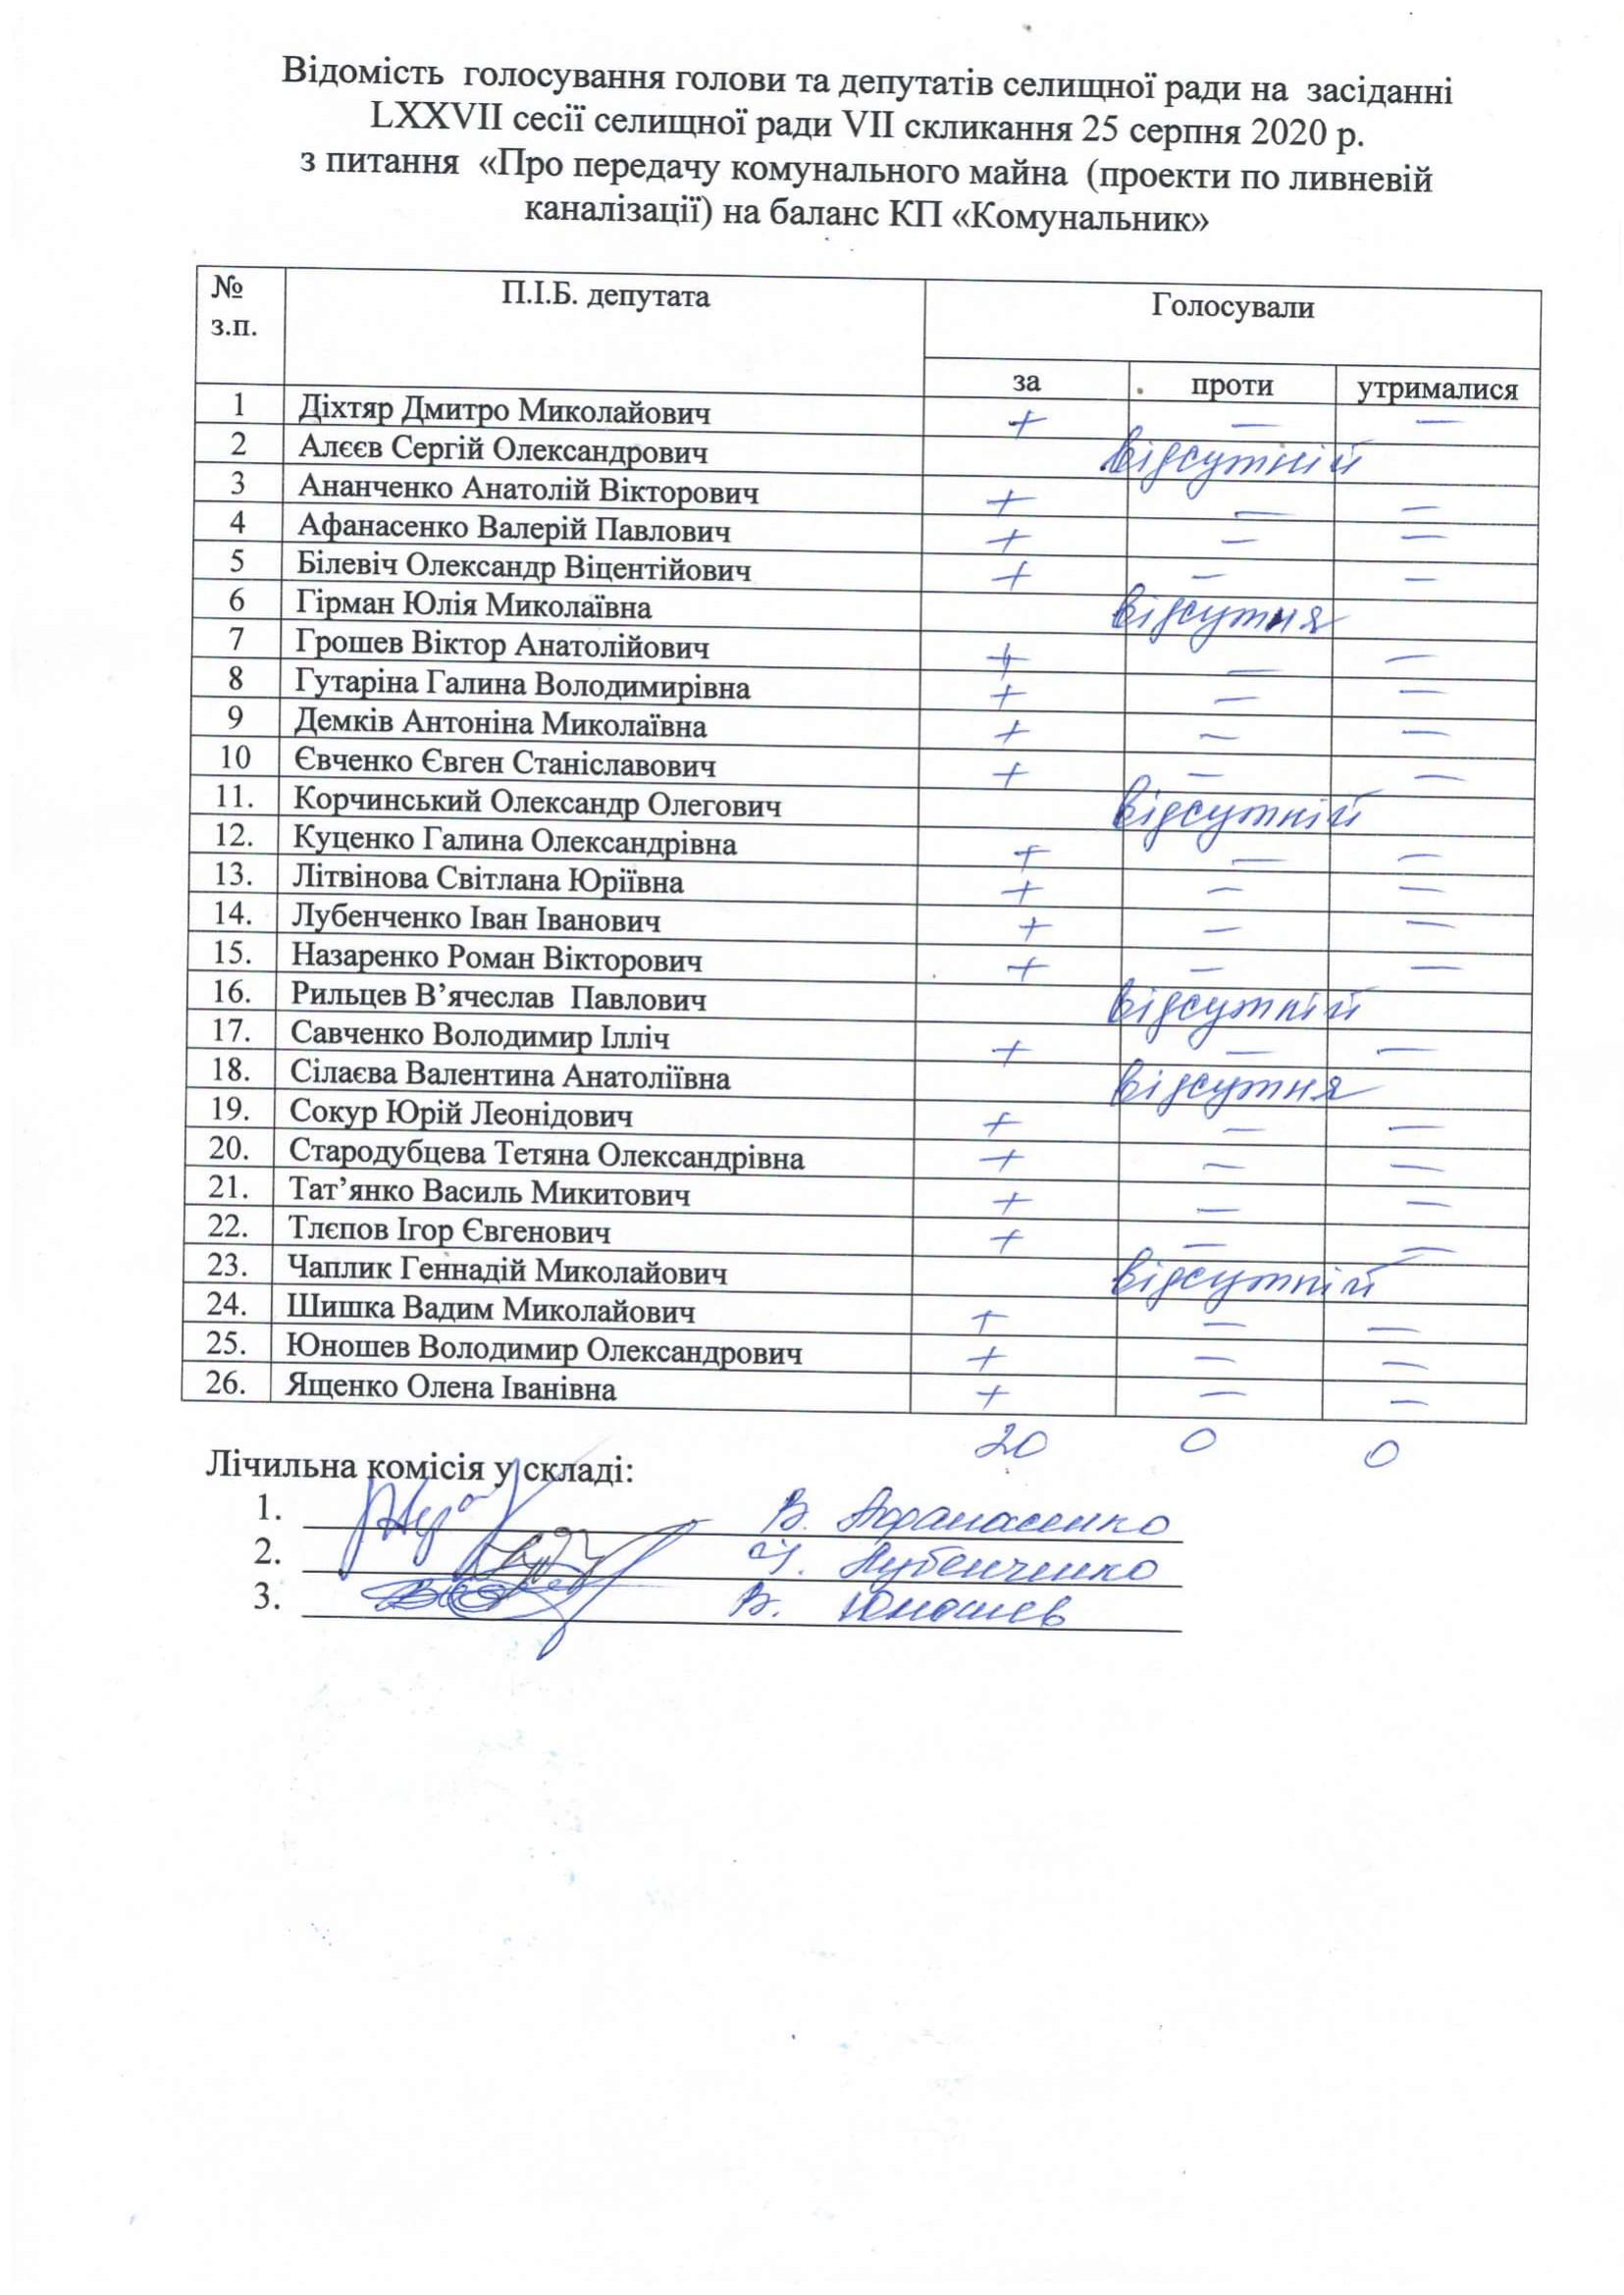 Відомість голосування голови та депутатів селищної ради на засіданні
LXXVII сесії селищної ради VII скликання 25 серпня 2020 р.
з питання «Про передачу комунального майна (проекти по ливневій
каналізації) на баланс КП «Комунальник»
№ з.п. П.І.Б. депутата Голосували
за проти утрималися
1 Діхтяр Дмитро Миколайович + — —
2 Алєєв Сергій Олександрович відсутній
3 Ананченко Анатолій Вікторович + — —
4 Афанасенко Валерій Павлович + — —
5 Білевіч Олександр Віцентійович + — —
6 Гірман Юлія Миколаївна відсутня
7 Грошев Віктор Анатолійович + — —
8 Гутаріна Галина Володимирівна + — —
9 Демків Антоніна Миколаївна + — —
10 Євченко Євген Станіславович + — —
11. Корчинський Олександр Олегович відсутній
12. Куценко Галина Олександрівна + — —
13. Літвінова Світлана Юріївна + — —
14. Лубенченко Іван Іванович + — —
15. Назаренко Роман Вікторович + — —
16. Рильцев В’ячеслав Павлович відсутній
17. Савченко Володимир Ілліч + — —
18. Сілаєва Валентина Анатоліївна відсутня
19. Сокур Юрій Леонідович + — —
20. Стародубцева Тетяна Олександрівна + — —
21. Тат’янко Василь Микитович + — —
22. Тлєпов Ігор Євгенович + — —
23. Чаплик Геннадій Миколайович відсутній
24. Шишка Вадим Миколайович + — —
25. Юношев Володимир Олександрович + — —
26. Ященко Олена Іванівна + — —
20 0 0
Лічильна комісія у складі:
1. В. Афанасенко
2. І. Лубенченко
3. В. Юношев